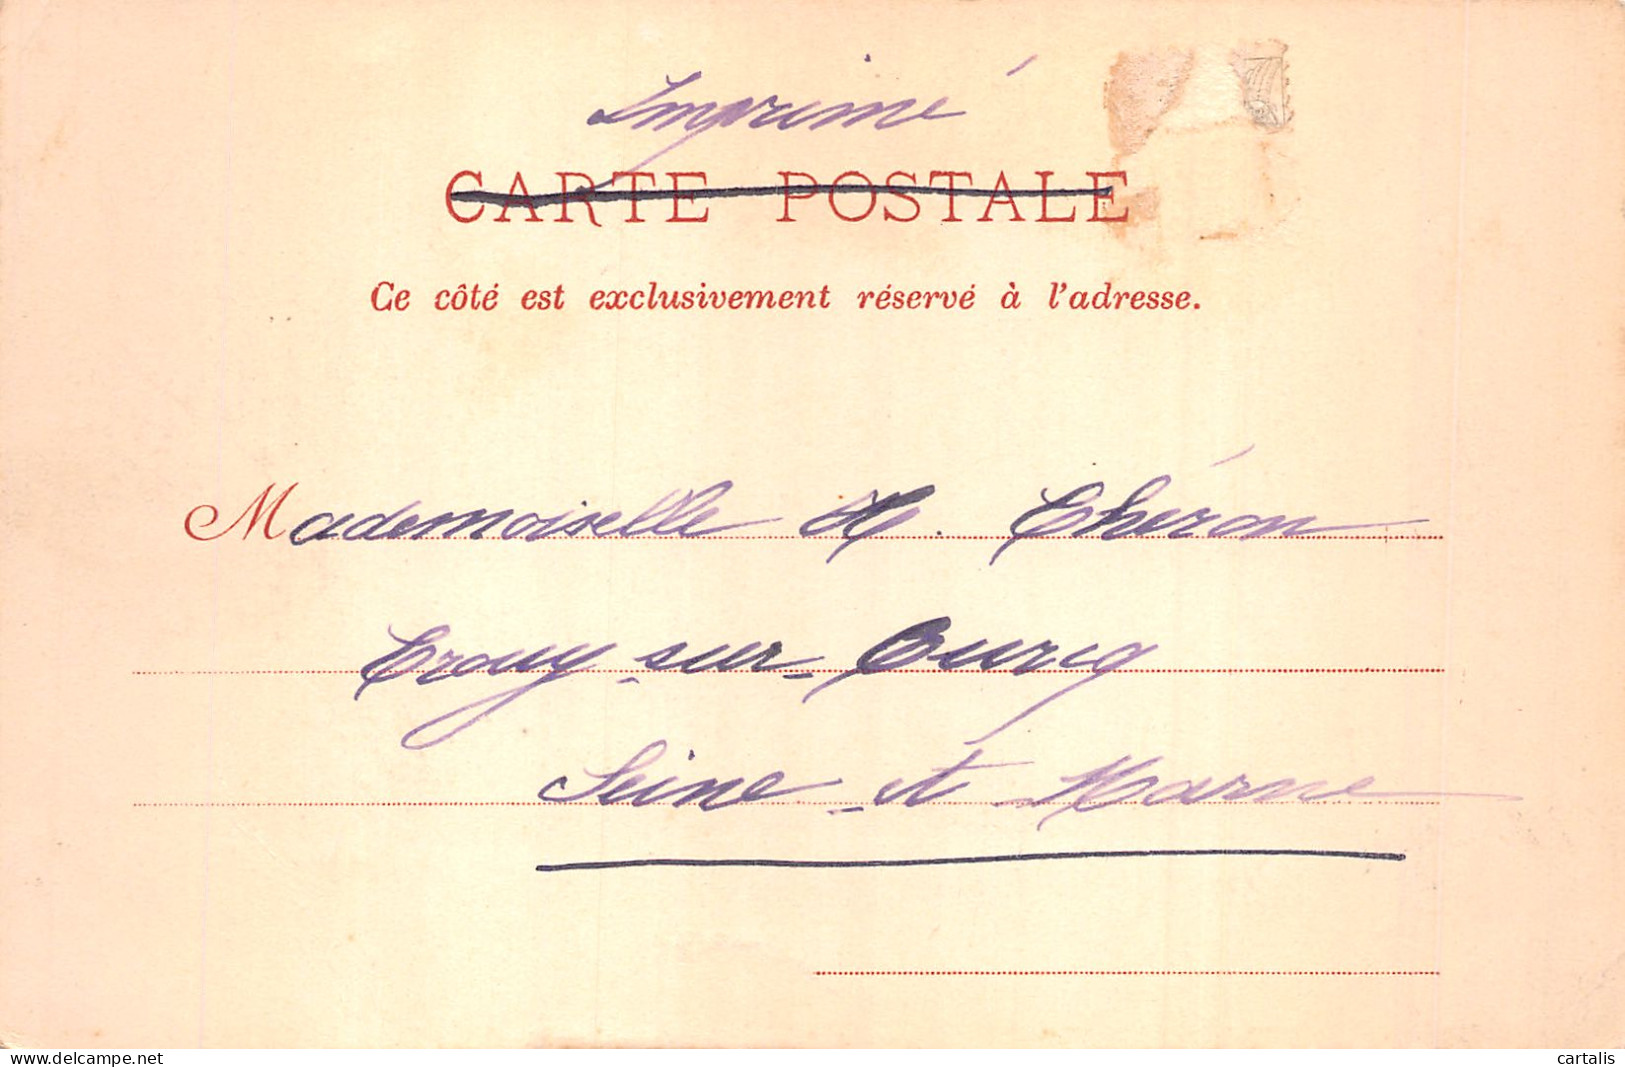 Imprimé
CARTE POSTALE
Ce côté est exclusivement réservé à l'adresse.
Mademoiselle H. Chéron
Crouy-sur-Ourcq
Seine-et Marne
www.delcampe.net
cartalis